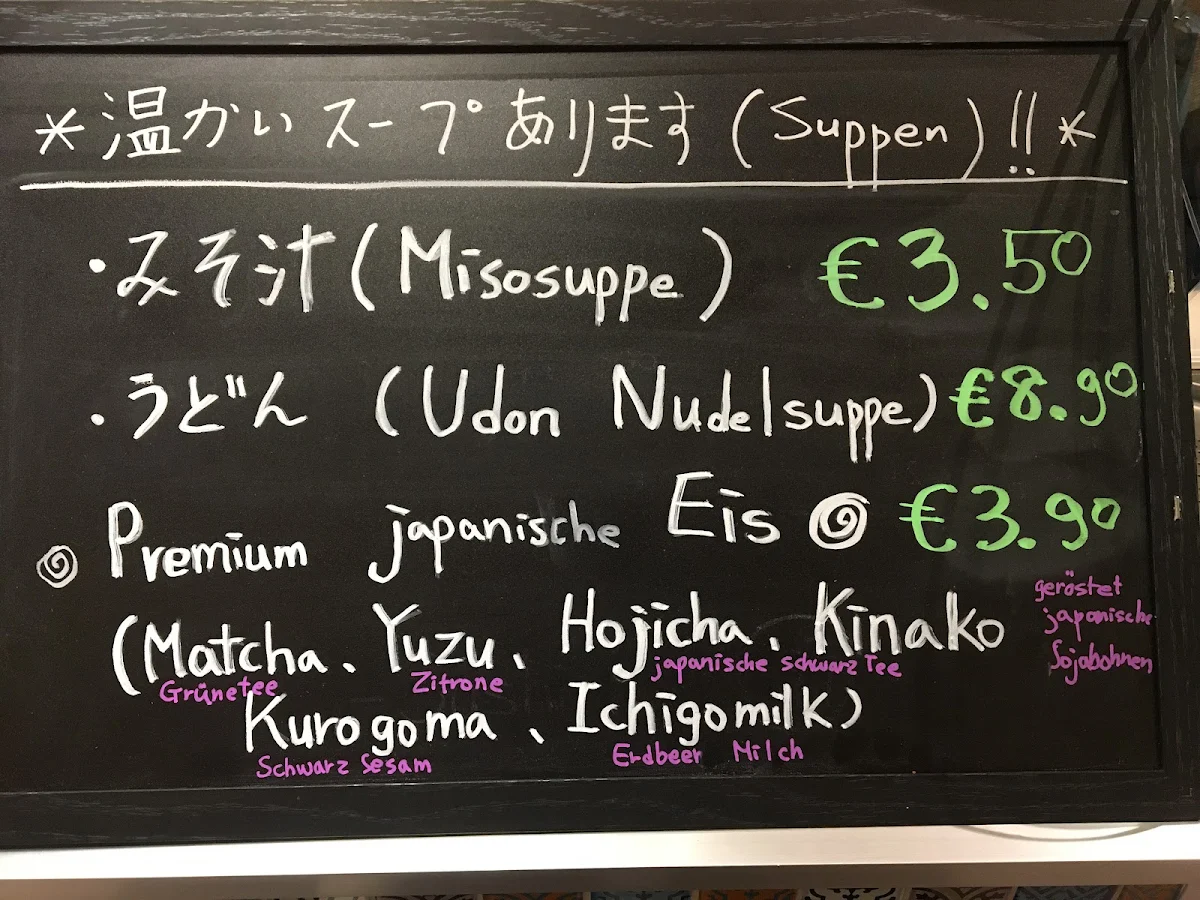 *温かいスープあります(Suppen)!!*
・みそ汁(Misosuppe) €3.50
・うどん (Udon Nudelsuppe) €8.90
Premium japanische Eis €3.90
(Matcha、Yuzu、Hojicha、Kinako
Grünetee Zitrone japanische schwarz Tee geröstet japanische Sojabohnen
Kurogoma、Ichigomilk)
Schwarz Sesam Erdbeer Milch